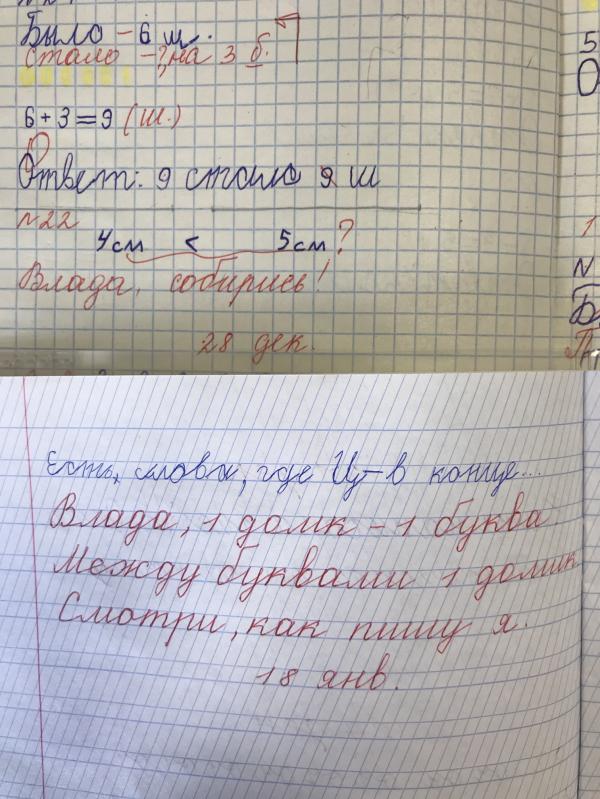 Было - 6 ш.
Стало - ?, на 3 б.
6 + 3 = 9 (ш.)
Ответ: 9 стало 9 ш
№22
4см < 5см ?
Влада, соберись!
28 дек.
Есть, слова, где Ц - в конце...
Влада, 1 домк - 1 буква.
Между буквами 1 домик
Смотри, как пишу я.
18 янв.
5
О
1
N
Б